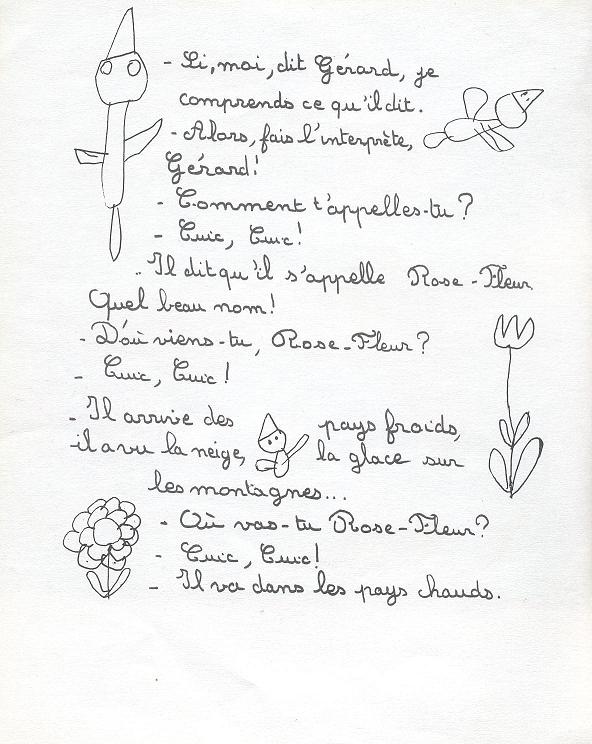 - Si, moi, dit Gérard, je
comprends ce qu'il dit.
- Alors, fais l'interprète,
Gérard!
- Comment t'appelles-tu?
- Cuic, Cuic!
- Il dit qu'il s'appelle Rose-Fleur
Quel beau nom!
- D'où viens-tu, Rose-Fleur?
- Cuic, Cuic!
- Il arrive des pays froids,
il a vu la neige, la glace sur
les montagnes...
- Où vas-tu Rose-Fleur?
- Cuic, Cuic!
- Il va dans les pays chauds.